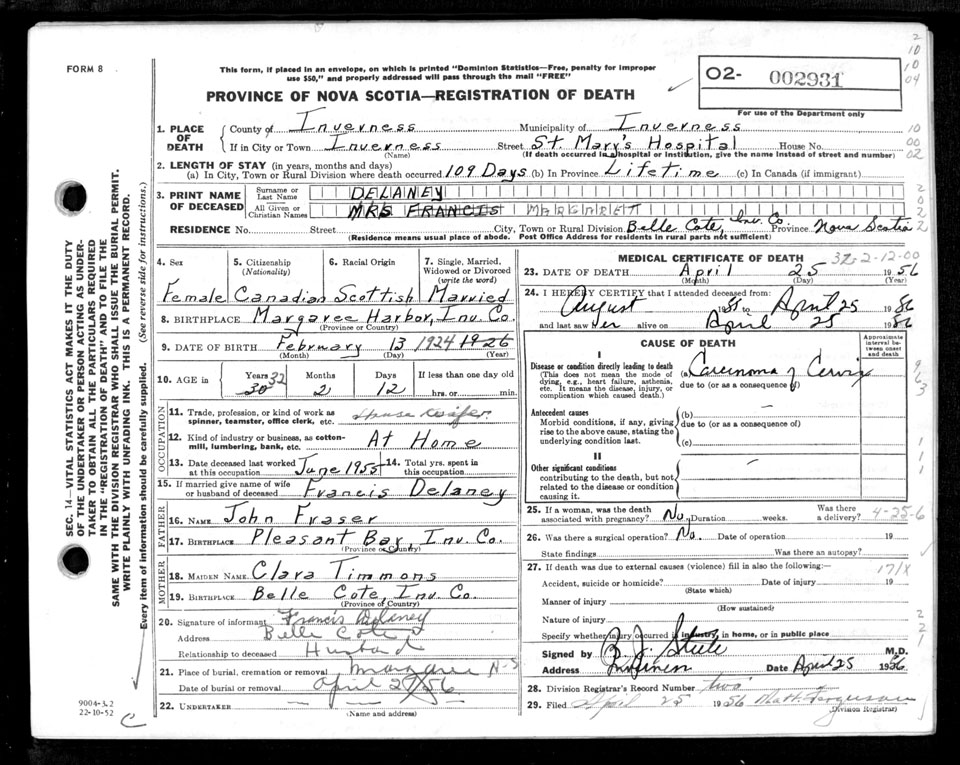 FORM 8
This form, if placed in an envelope, on which is printed "Dominion Statistics—Free, penalty for improper
use $50," and properly addressed will pass through the mail "FREE"
O2- 002931
For use of the Department only
PROVINCE OF NOVA SCOTIA—REGISTRATION OF DEATH
1. PLACE OF DEATH County of Inverness Municipality of Inverness
If in City or Town Inverness Street St. Mary's Hospital House No.
(Name) (If death occurred in a hospital or institution, give the name instead of street and number)
2. LENGTH OF STAY (in years, months and days)
(a) In City, Town or Rural Division where death occurred 109 Days (b) In Province Lifetime (c) In Canada (if immigrant)
3. PRINT NAME OF DECEASED Surname or Last Name DELANEY
All Given or Christian Names MRS FRANCIS MARGARET
RESIDENCE No. Street City, Town or Rural Division Belle Cote, Inv. Co. Province Nova Scotia
(Residence means usual place of abode. Post Office Address for residents in rural parts not sufficient)
4. Sex 5. Citizenship (Nationality) 6. Racial Origin 7. Single, Married, Widowed or Divorced (write the word)
Female Canadian Scottish Married
8. BIRTHPLACE Margaree Harbor, Inv. Co.
(Province or Country)
9. DATE OF BIRTH February 13 1924 1926
(Month) (Day) (Year)
10. AGE in Years Months Days If less than one day old
30 32 2 12 hrs. or min.
OCCUPATION
11. Trade, profession, or kind of work as spinner, teamster, office clerk, etc. House Keeper
12. Kind of industry or business, as cotton-mill, lumbering, bank, etc. At Home
13. Date deceased last worked at this occupation June 1955 14. Total yrs. spent in this occupation
15. If married give name of wife or husband of deceased Francis Delaney
FATHER
16. NAME John Fraser
17. BIRTHPLACE Pleasant Bay, Inv. Co.
(Province or Country)
MOTHER
18. MAIDEN NAME Clara Timmons
19. BIRTHPLACE Belle Cote, Inv. Co.
(Province of Country)
20. Signature of informant Francis Delaney
Address Belle Cote
Relationship to deceased Husband
21. Place of burial, cremation or removal Margaree N-S
Date of burial or removal April 27/56
22. UNDERTAKER
(Name and address)
MEDICAL CERTIFICATE OF DEATH 32-2-12-00
23. DATE OF DEATH April 25 1956
(Month) (Day) (Year)
24. I HEREBY CERTIFY that I attended deceased from:
August 1955 to April 25 1956
and last saw her alive on April 25 1956
CAUSE OF DEATH
Approximate interval between onset and death
I
Disease or condition directly leading to death
(This does not mean the mode of dying, e.g., heart failure, asthenia, etc. It means the disease, injury, or complication which caused death.)
(a) Carcinoma of Cervix
due to (or as a consequence of)
Antecedent causes
Morbid conditions, if any, giving rise to the above cause, stating the underlying condition last.
(b)
due to (or as a consequence of)
(c)
II
Other significant conditions
contributing to the death, but not related to the disease or condition causing it.
25. If a woman, was the death associated with pregnancy? No Duration weeks. Was there a delivery? 4-25-6
26. Was there a surgical operation? No. Date of operation 19
State findings Was there an autopsy?
27. If death was due to external causes (violence) fill in also the following:—
171X
Accident, suicide or homicide? Date of injury 19
(State which)
Manner of injury
(How sustained)
Nature of injury
Specify whether injury occurred in industry, in home, or in public place
Signed by B. J. Steele M.D.
Address Inverness Date April 25 1956
28. Division Registrar's Record Number two
29. Filed April 25 1956 Matt. Ferguson
(Division Registrar)
SEC. 14—VITAL STATISTICS ACT MAKES IT THE DUTY
OF THE UNDERTAKER OR PERSON ACTING AS UNDER-
TAKER TO OBTAIN ALL THE PARTICULARS REQUIRED
IN THE "REGISTRATION OF DEATH" AND TO FILE THE
SAME WITH THE DIVISION REGISTRAR WHO SHALL ISSUE THE BURIAL PERMIT.
WRITE PLAINLY WITH UNFADING INK. THIS IS A PERMANENT RECORD.
Every item of information should be carefully supplied. (See reverse side for instructions.)
9004-3.2
22-10-52
C
2
10
10
04
10
00
02
2
0
2
2
9
6
3
1
1
1
2
2
1